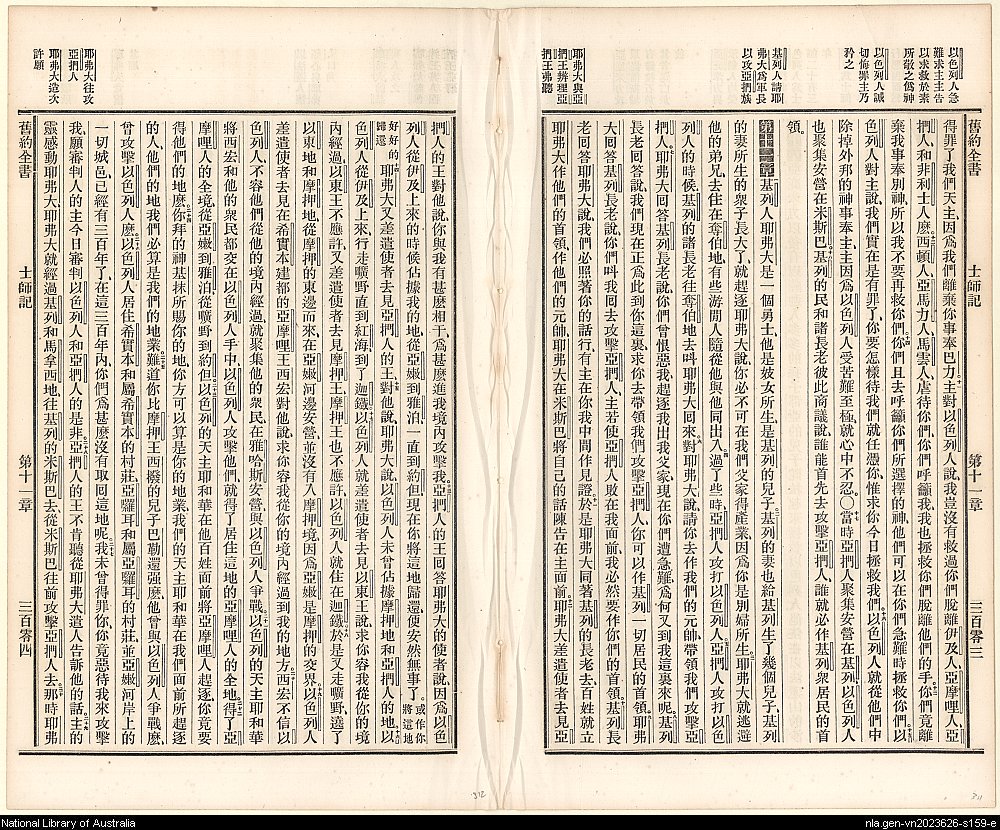 以色列人急
難求主主告
以求救於素
所敬之僞神
以色列人誠
切悔罪主乃
矜之
基列人請耶
弗大爲軍長
以攻亞捫族
耶弗大與亞
捫王辨理亞
捫王弗聽
舊約全書 士師記 第十一章 三百零三
得罪了我們天主、因爲我們離棄你事奉巴力主對以色列人說、我豈沒有救過你們脫離伊及人、亞摩哩人、亞
捫人、和非利士人麼西頓人、亞馬力人、馬雲人、虐待你們、你們呼籲我、我也拯救你們脫離他們的手、你們竟離
棄我事奉別神、所以我不要再救你們、你們且去呼籲你們所選擇的神、他們可以在你們急難時拯救你們、以
色列人對主說、我們實在是有罪了、你要怎樣待我們就任憑你、惟求你今日拯救我們、以色列人就從他們中
除掉外邦的神、事奉主、主因爲以色列人受苦難至極、就心中不忍○當時亞捫人聚集安營在基列、以色列人
也聚集安營在米斯巴、基列的民和諸長老彼此商議說、誰能首先去攻擊亞捫人、誰就必作基列衆居民的首
領、
第十一章 基列人耶弗大是一個勇士、他是妓女所生、是基列的兒子、基列的妻也給基列生了幾個兒子、基列
的妻所生的衆子長大了、就趕逐耶弗大說、你必不可在我們父家得產業、因爲你是別婦所生、耶弗大就逃避
他的弟兄、去住在奪伯地、有些游閒人隨從他、與他同出入、過了些時、亞捫人攻打以色列人、亞捫人攻打以色
列人的時候、基列的諸長老往奪伯地去叫耶弗大回來、對耶弗大說、請你去作我們的元帥、帶領我們攻擊亞
捫人、耶弗大回答基列長老說、你們曾恨惡我、趕逐我出我父家、現在你們遭急難、爲何又到我這裏來呢、基列
長老回答說、我們現在正爲此到你這裏、求你去帶領我們攻擊亞捫人、你可以作基列一切居民的首領、耶弗
大回答基列長老說、你們叫我回去攻擊亞捫人、主若使亞捫人敗在我面前、我必然要作你們的首領、基列長
老回答耶弗大說、我們必照著你的話行、有主在你我中間作見證、於是耶弗大同著基列的長老去、百姓就立
耶弗大作他們的首領、作他們的元帥、耶弗大在米斯巴將自己的話陳告在主面前、耶弗大差遣使者去見亞
耶弗大往攻
亞捫人
耶弗大造次
許願
捫人的王對他說、你與我有甚麼相干、爲甚麼進我境內攻擊我、亞捫人的王回答耶弗大的使者說、因爲以色
列人從伊及上來的時候、佔據我的地、從亞嫩到雅泊、一直到約但、現在你將這地歸還、便安然無事了、或作你將這地
好好的歸還 耶弗大又差遣使者去見亞捫人的王、對他說、耶弗大說、以色列人未曾佔據摩押地和亞捫人的地、以
色列人從伊及上來、行走曠野直到紅海、到了迦鐵、以色列人就差遣使者去見以東王說、求你容我從你的境
內經過、以東王不應許、又差遣使者去見摩押王、摩押王也不應許、以色列人就住在迦鐵、於是又走曠野、遶了
以東地和摩押地、從摩押的東邊而來、在亞嫩河邊安營、並沒有入摩押境、因爲亞嫩是摩押的交界、以色列人
差遣使者去見在希實本建都的亞摩哩王西宏、對他說、求你容我從你的境內經過到我的地方、西宏不信以
色列人、不容他們從他的境內經過、就聚集他的衆民在雅哈斯安營、與以色列人爭戰、以色列的天主耶和華
將西宏和他的衆民都交在以色列人手中、以色列人攻擊他們、就得了居住這地的亞摩哩人的全地、得了亞
摩哩人的全境、從亞嫩到雅泊、從曠野到約但、以色列的天主耶和華在他百姓面前將亞摩哩人趕逐、你竟要
得他們的地麼、你拜的神基抹所賜你的地、你方可以算是你的地業、我們的天主耶和華在我們面前所趕逐
的人、他們的地我們必算是我們的地業、難道你比摩押王西撥的兒子巴勒還强麼、他曾與以色列人爭戰麼、
曾攻擊以色列人麼、以色列人居住希實本和屬希實本的村莊、亞囉耳和屬亞囉耳的村莊、並亞嫩河岸上的
一切城邑、已經有三百年了、在這三百年內、你們爲甚麼沒有取回這地呢、我未曾得罪你、你竟惡待我、來攻擊
我、願審判人的主今日審判以色列人和亞捫人的是非、亞捫人的王不肯聽從耶弗大遣人告訴他的話、主的
靈感動耶弗大、耶弗大就經過基列和馬拿西地、往基列的米斯巴去、從米斯巴往前攻擊亞捫人去、那時耶弗
舊約全書 士師記 第十一章 三百零四
312
311
National Library of Australia
nla.gen-vn2023626-s159-e